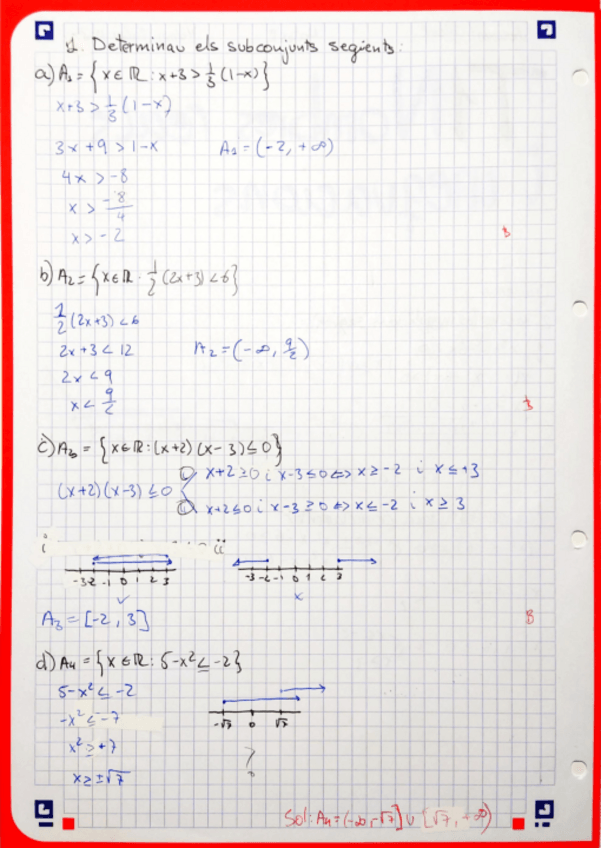 1. Determinau els subconjunts següents:
a) A₁ = {x ∈ ℝ : x+3 > 1/3 (1-x)}
x+3 > 1/3 (1-x)
3x + 9 > 1-x A₁ = (-2, +∞)
4x > -8
x > -8/4
x > -2
b) A₂ = {x ∈ ℝ : 1/2 (2x+3) < 6}
1/2 (2x+3) < 6
2x + 3 < 12 A₂ = (-∞, 9/2)
2x < 9
x < 9/2
c) A₃ = {x ∈ ℝ : (x+2)(x-3) ≤ 0}
(x+2)(x-3) ≤ 0
i x+2 ≥ 0 i x-3 ≤ 0 ⇔ x ≥ -2 i x ≤ +3
ii x+2 ≤ 0 i x-3 ≥ 0 ⇔ x ≤ -2 i x ≥ 3
i ii
-3 -2 -1 0 1 2 3 -3 -2 -1 0 1 2 3
✓ x
A₃ = [-2, 3] B
d) A₄ = {x ∈ ℝ : 5-x² ≤ -2}
5-x² ≤ -2
-x² ≤ -7 -√7 0 √7
x² ≥ +7 ?
x ≥ ±√7
Sol: A₄ = (-∞, -√7] ∪ [√7, +∞)